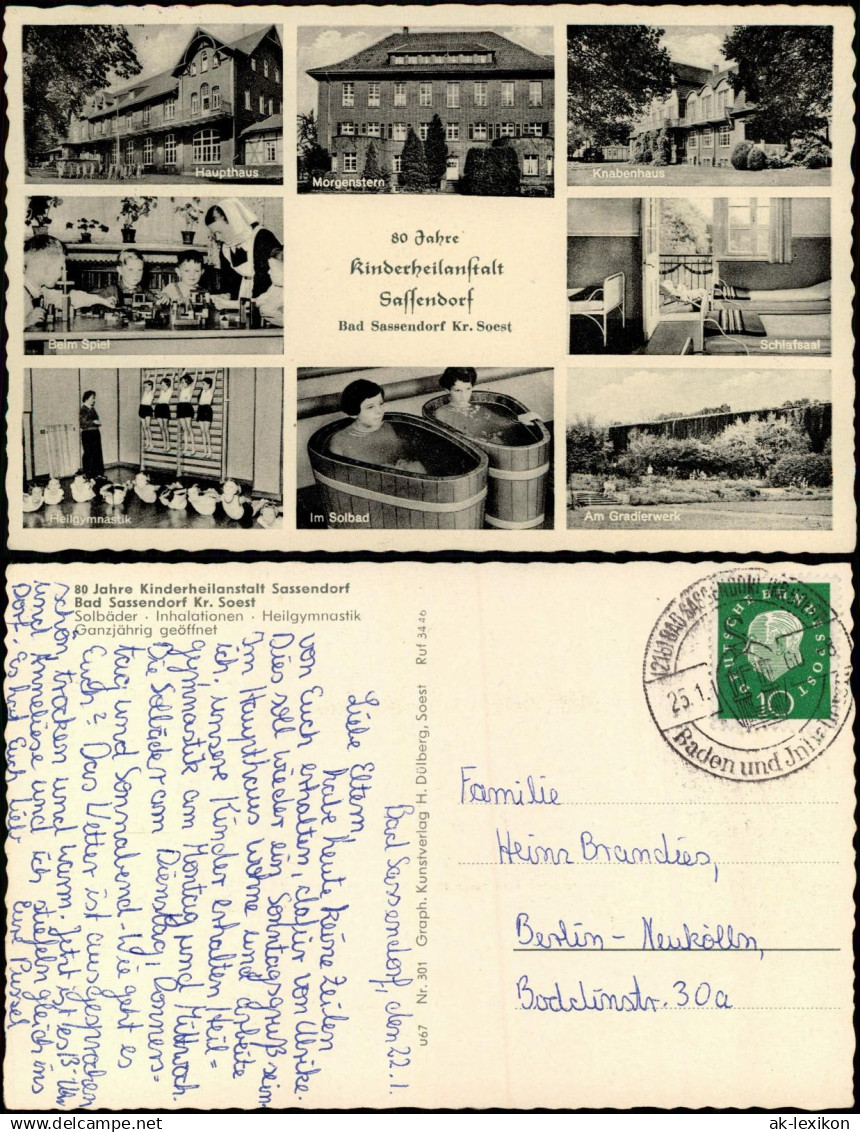 Haupthaus
Morgenstern
Knabenhaus
80 Jahre
Kinderheilanstalt
Sassendorf
Bad Sassendorf Kr. Soest
Beim Spiel
Schlafsaal
Heilgymnastik
Im Solbad
Am Gradierwerk
80 Jahre Kinderheilanstalt Sassendorf
Bad Sassendorf Kr. Soest
Solbäder · Inhalationen · Heilgymnastik
Ganzjährig geöffnet
Bad Sassendorf, den 22.1.
Liebe Eltern,
habe heute keine Zeilen
von Euch erhalten, dafür von Ulrike.
Dies soll wieder ein Sonntagsgruß sein.
Im Haupthaus wohne und arbeite
ich, unsere Kinder erhalten Heil=
gymnastik am Montag und Mittwoch.
Die Solbäder am Dienstag, Donners=
tag und Sonnabend. Wie geht es
Euch? Das Wetter ist ausgesprochen
schön, trocken und warm. Jetzt ist es 13- Uhr
und Anneliese und ich stiefeln gleich ins
Dorf. Es hat Euch lieb
Eure Pussel
u67 Nr. 301 Graph. Kunstverlag H. Dülberg, Soest Ruf 3446
DEUTSCHE BUNDESPOST
10
(21b) BAD SASSENDORF
25.1.
Baden und Inha
Familie
Heinz Brandies,
Berlin - Neukölln,
Boddinstr. 30a
ak-lexikon